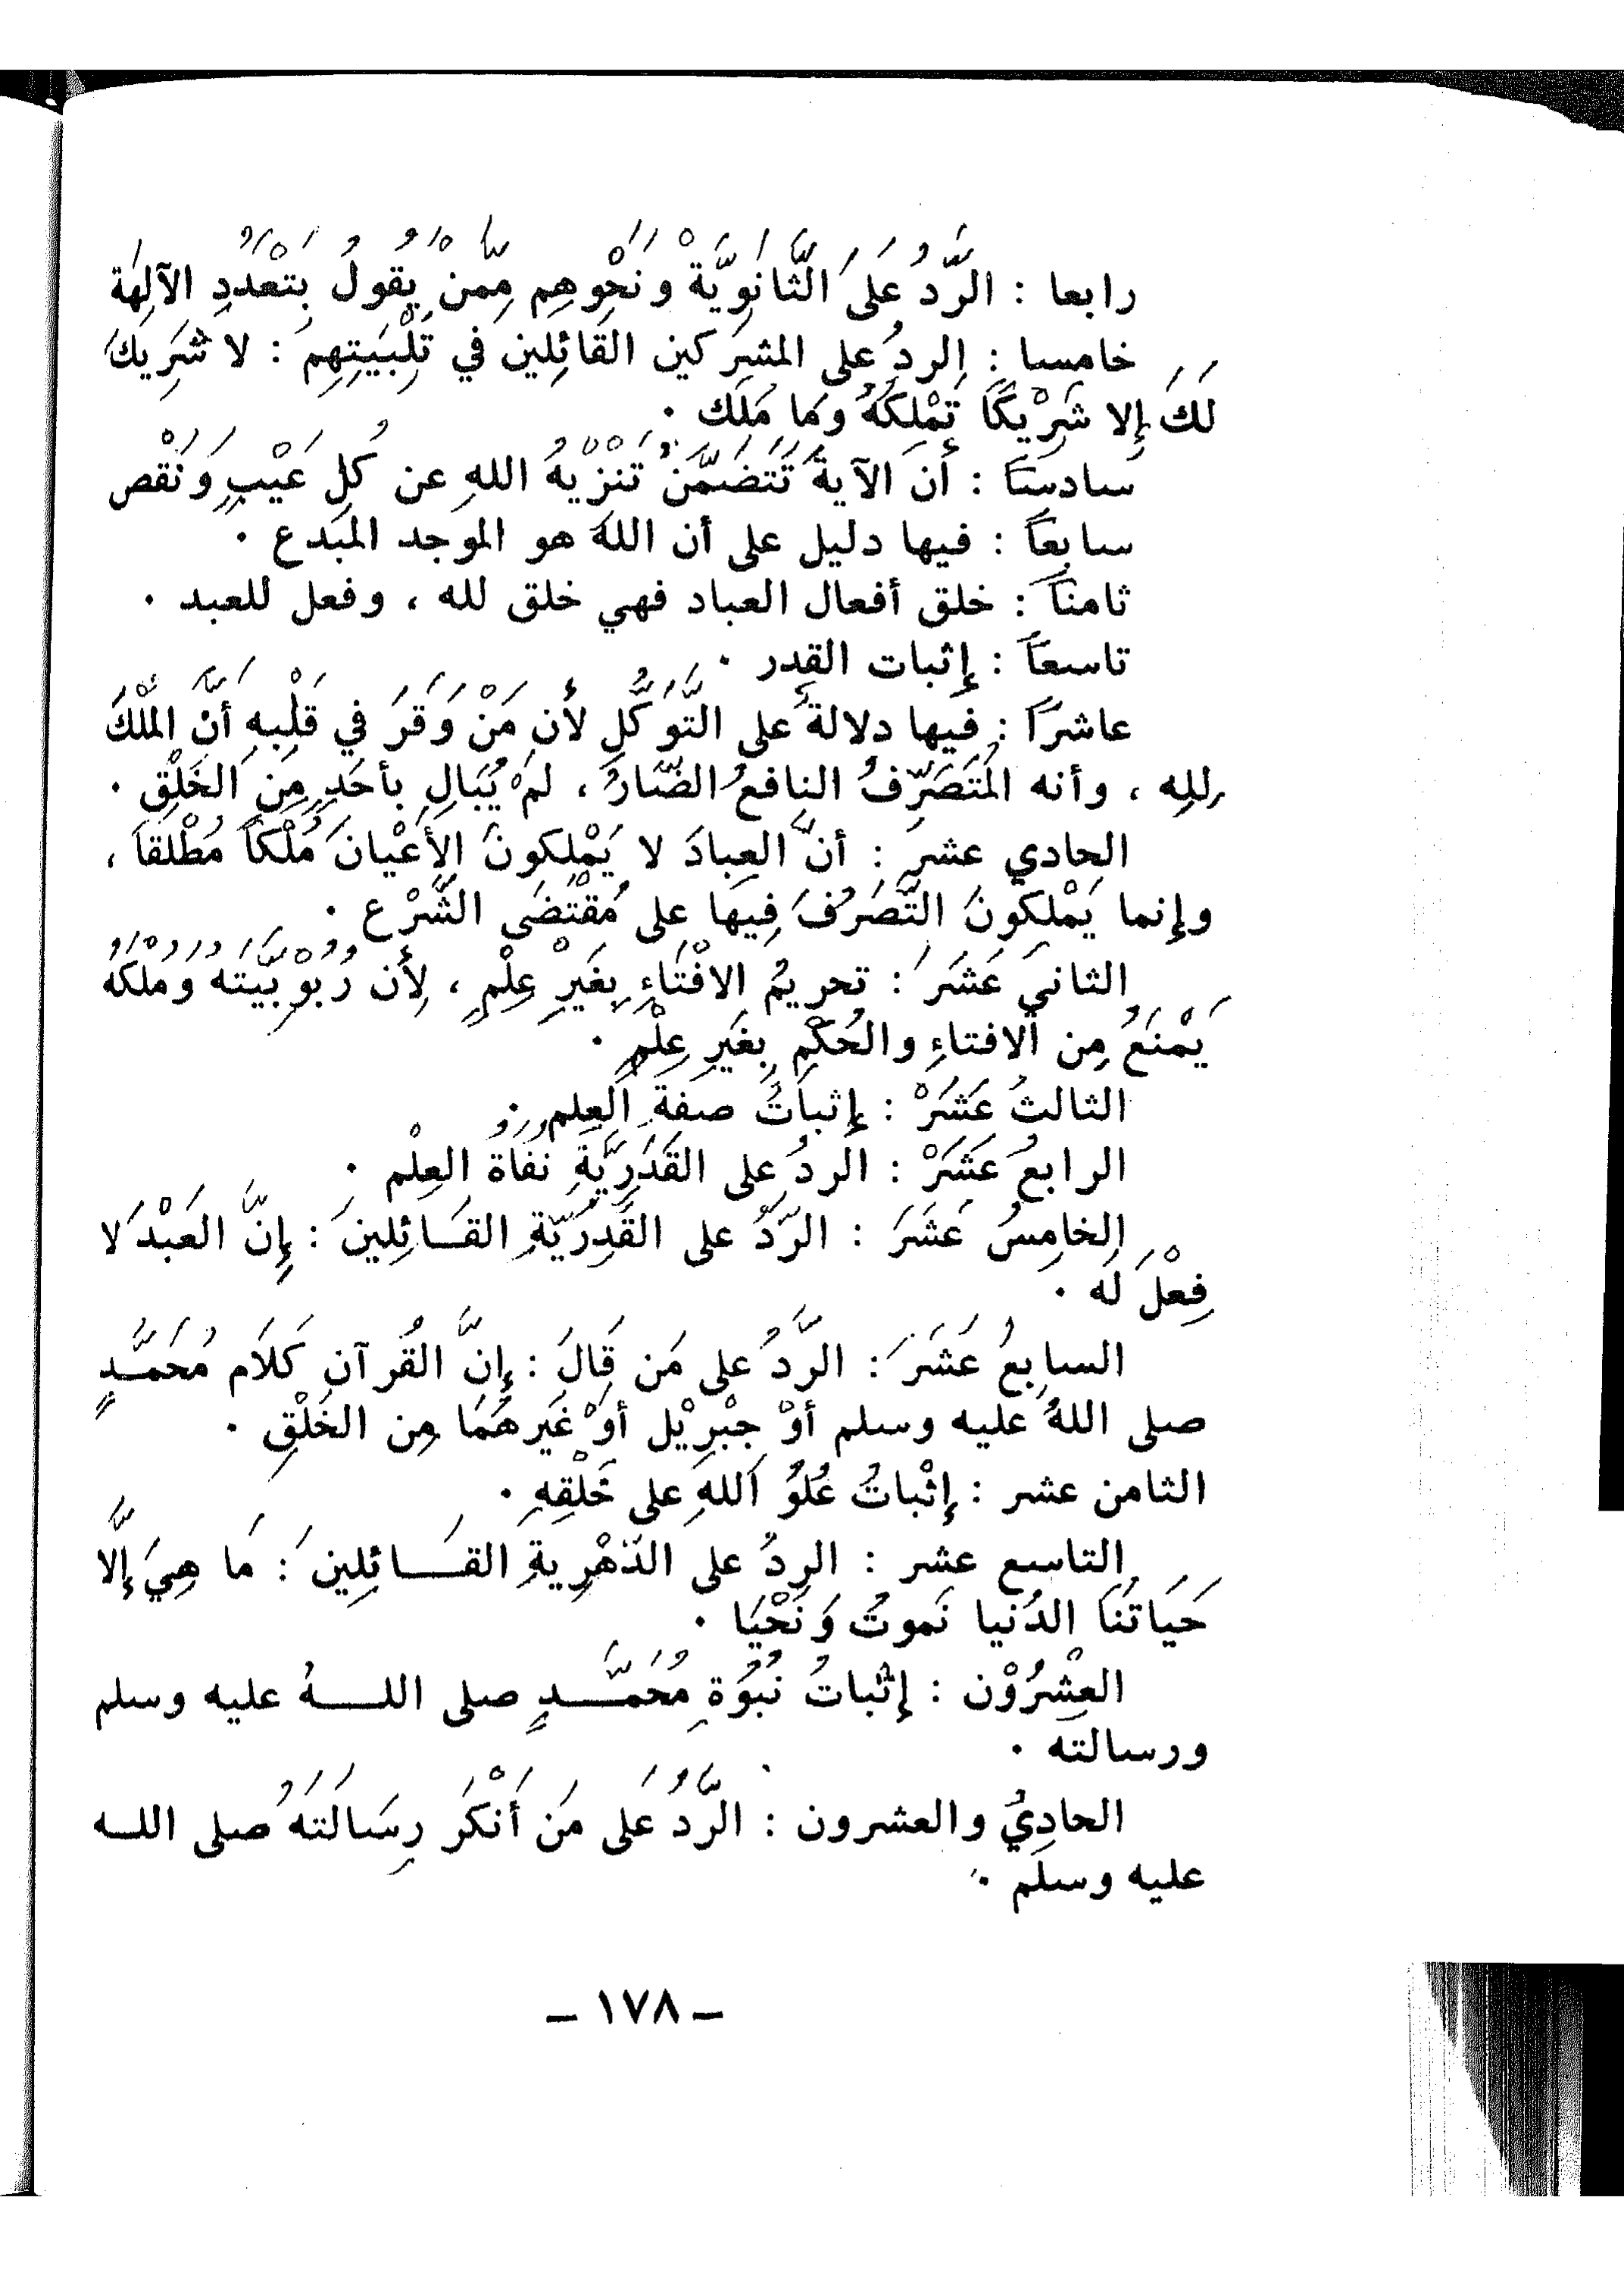 رابعا : الرَّدُّ عَلَى الثَّانَوِيَّةْ وَنَحْوِهِم مِمَّنْ يُقولُ بِتَعْدُدِ الآلِهَة
خامسا : الردُ على المشركين القَائِلين في تَلْبِيَتِهِم : لا شَرِيكَ
لَكَ إلا شَرِيْكًا تَمْلِكَهُ وَمَا مَلَك .
سادسًا : أن الآيةَ تَتَضَمَّنُ تَنْزْيهُ اللهِ عن كُلِ عَيْبٍ وَنَقْص
سابعاً : فيها دليل على أن اللهَ هو الموجد المبدع .
ثامناً : خلق أفعال العباد فهي خلق لله ، وفعل للعبد .
تاسعاً : إثبات القدر .
عاشراً : فيها دلالةُ على التَّوَكَّلِ لأَن مَنْ وَقَرَ في قَلْبِهِ أَنَّ المُلْكَ
للهِ ، وأنه المُتَصَرِّفُ النافعُ الضَّارُ ، لَمْ يُبَالِ بأَحَدٍ مِنَ الخَلْقِ .
الحادي عشر : أنَّ العِبادَ لا يَمْلِكونَ الأَعْيانَ مُلْكاً مُطْلقاً ،
وإنما يَمْلِكونَ التَّصَرُفَ فِيها على مُقْتَضَى الشَّرْع .
الثاني عَشَرَ : تحريمُ الافْتَاءِ بِغَيرِ عِلْمٍ ، لِأَن رُبُوْبِيَّتَه وَمُلْكَهُ
يَمْنَعُ مِن الافتاءِ والحُكْمِ بِغَيرِ عِلْمٍ .
الثالثُ عَشَرْ : إثباتُ صفَةِ العِلم .
الرابعُ عَشَرْ : الردُ على القَدَرِيَّةِ نُفَاةُ العِلْم .
الخامِسُ عَشَرَ : الرَّدُّ على القَدَرِيَّةِ القَائِلينَ : إنَّ العَبْدَ لا
فِعْلَ لَه .
السابِعُ عَشَرَ : الرَّدُ على مَن قَالَ : إنَّ القُرآن كَلَام مُحَمَّدٍ
صلى اللهُ عليه وسلم أوْ جِبْرِيْل أوْ غَيرِهُمَا مِن الخَلْقِ .
الثامن عشر : إثْباتُ عُلُوِّ اللهِ على خَلْقِهِ .
التاسع عشر : الردُ على الدَهْرِيةِ القَائِلينَ : مَا هِيَ إلَّا
حَيَاتُنَا الدُنيا نَموتُ وَنَحْيَا .
العِشْرُوْن : إثْباتُ نُبُوَةِ مُحَمَّدٍ صلى اللهُ عليه وسلم
ورسالته .
الحادِيْ والعشرون : الرَّدُ عَلى مَن أَنْكَرَ رِسَالَتَهُ صلى الله
عليه وسلم .
– ١٧٨ –